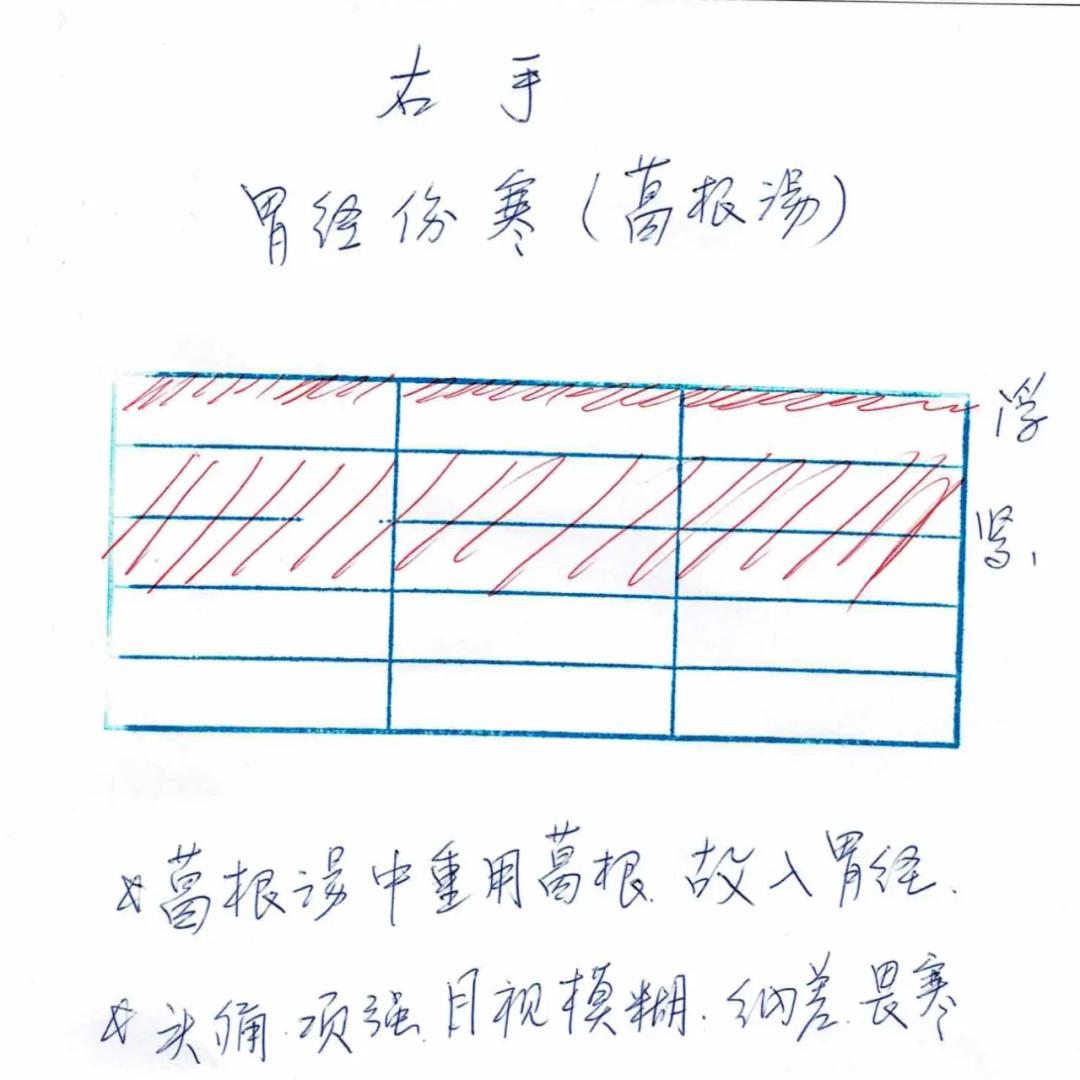 右手
胃经份寒(葛根湯)
浮
紧、
*葛根湯中重用葛根.故入胃经.
*头痛.项强.目视模糊.纳差.畏寒